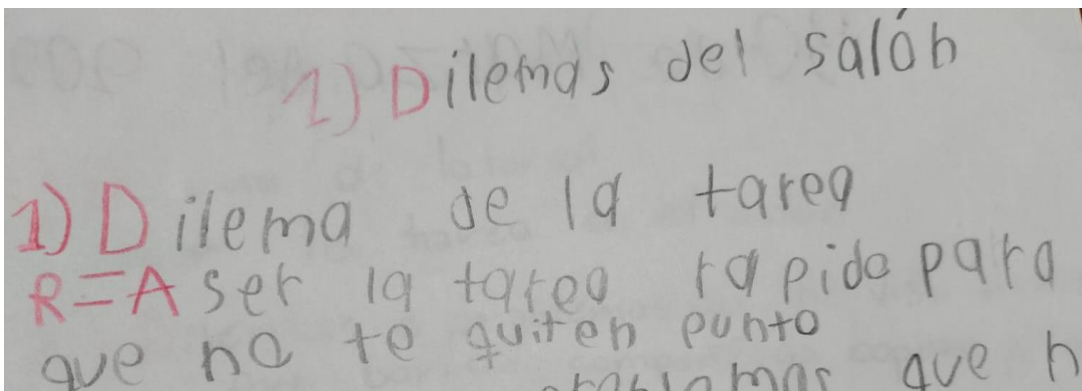 1) Dilemas del salón
1) Dilema de la tarea
R=A ser la tarea rapido para
que no te quiten punto
mas que